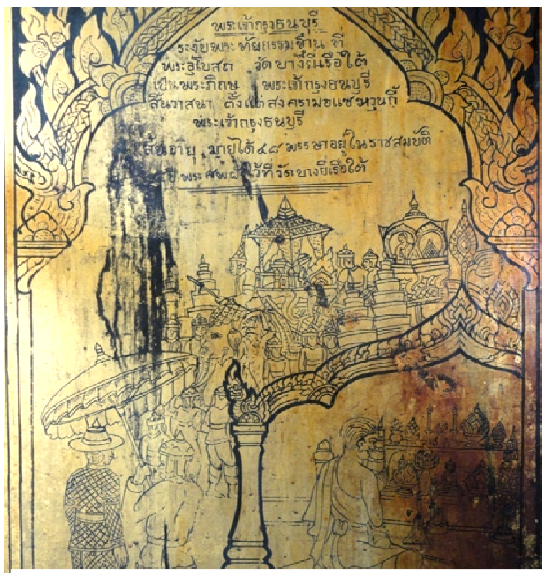 พระเจ้ากรุงธนบุรี
ระงับพระทัยกรรมฐาน ที่
พระอุโบสถ วัด บางยี่เรือใต้
เป็นพระภิกษุ พระเจ้ากรุงธนบุรี
สิ้นวาสนา ตั้งแต่สงครามอแซหวุ่นกี้
พระเจ้ากรุงธนบุรี
สิ้นอายุ มายุได้ ๔๘ พรรษาอยู่ในราชสมบัติ
ปี พระศพฝังไว้ที่วัดบางยี่เรือใต้